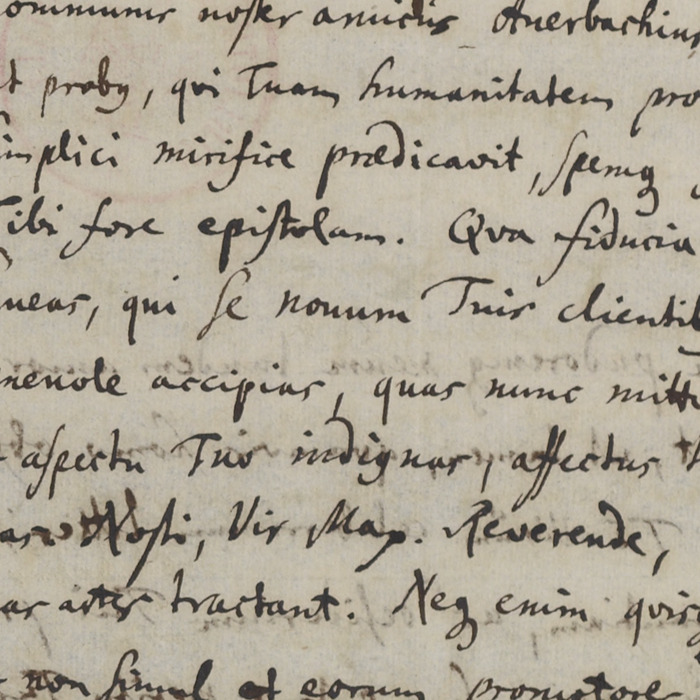 communis noster amicus Auerbachius
et proby, qui Tuam humanitatem pro
implici mirifice prædicavit, spemq
Tibi fore epistolam. Qva fiducia
queas, qui se nouum Tuis clientib
neuole accipias, quas nunc mitt
aspectu Tuo indignas, affectus
as. Nosti, Vir Max. Reverende,
as artes tractant. Neq enim quisq
non simul et eorum promotores